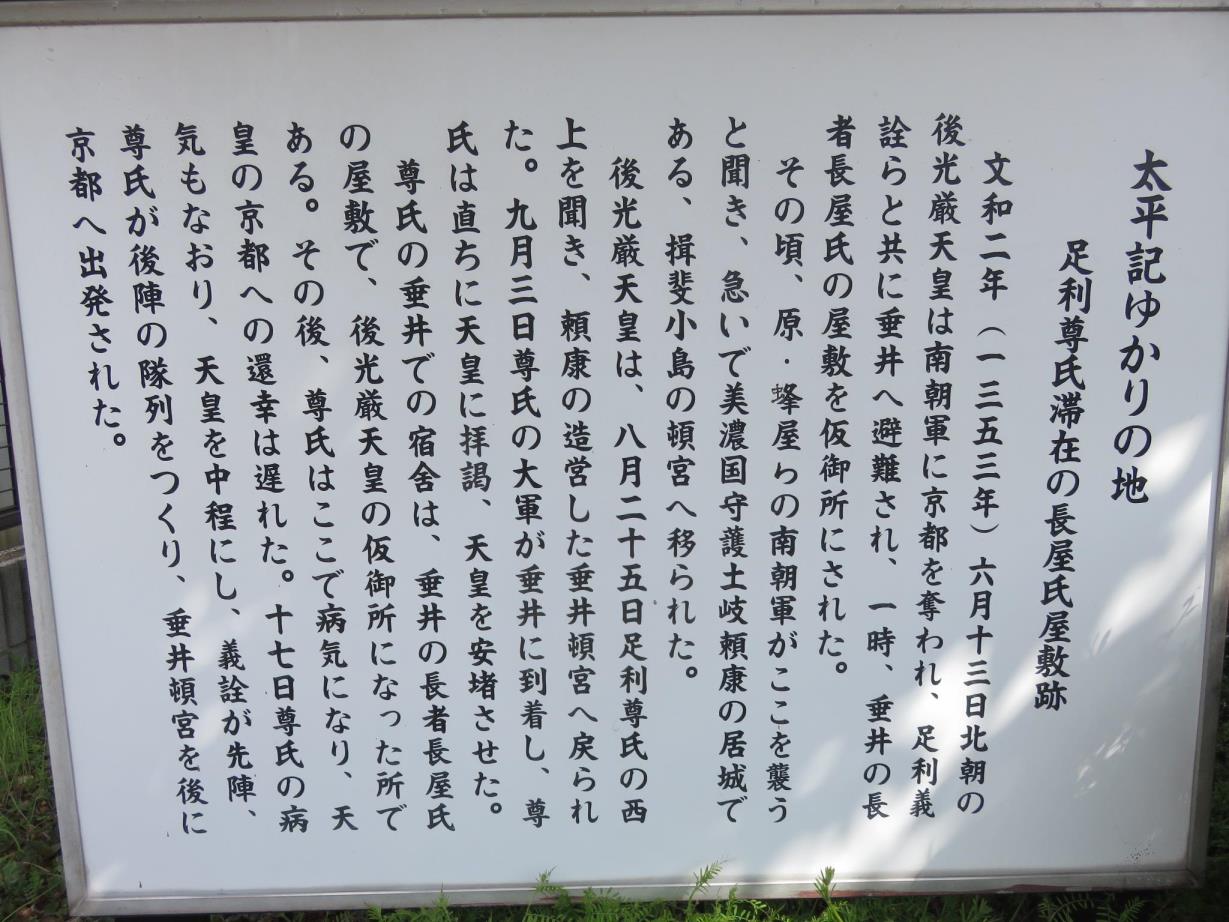 太平記ゆかりの地
足利尊氏滞在の長屋氏屋敷跡
文和二年（一三五三年）六月十三日北朝の
後光厳天皇は南朝軍に京都を奪われ、足利義
詮らと共に垂井へ避難され、一時、垂井の長
者長屋氏の屋敷を仮御所にされた。
その頃、原・蜂屋らの南朝軍がここを襲う
と聞き、急いで美濃国守護土岐頼康の居城で
ある、揖斐小島の頓宮へ移られた。
後光厳天皇は、八月二十五日足利尊氏の西
上を聞き、頼康の造営した垂井頓宮へ戻られ
た。九月三日尊氏の大軍が垂井に到着し、尊
氏は直ちに天皇に拝謁、天皇を安堵させた。
尊氏の垂井での宿舎は、垂井の長者長屋氏
の屋敷で、後光厳天皇の仮御所になった所で
ある。その後、尊氏はここで病気になり、天
皇の京都への還幸は遅れた。十七日尊氏の病
気もなおり、天皇を中程にし、義詮が先陣、
尊氏が後陣の隊列をつくり、垂井頓宮を後に
京都へ出発された。